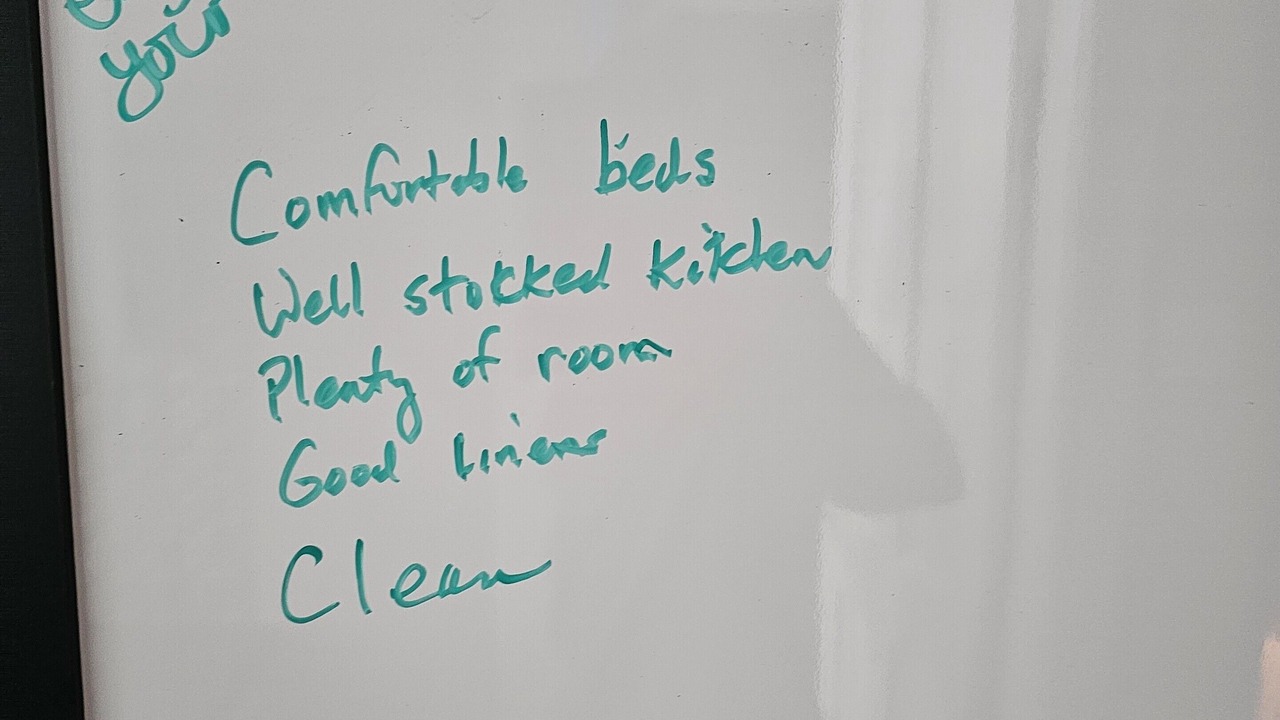 your
Comfortable beds
Well stokked kitchen
Plenty of room
Good linens
Clean